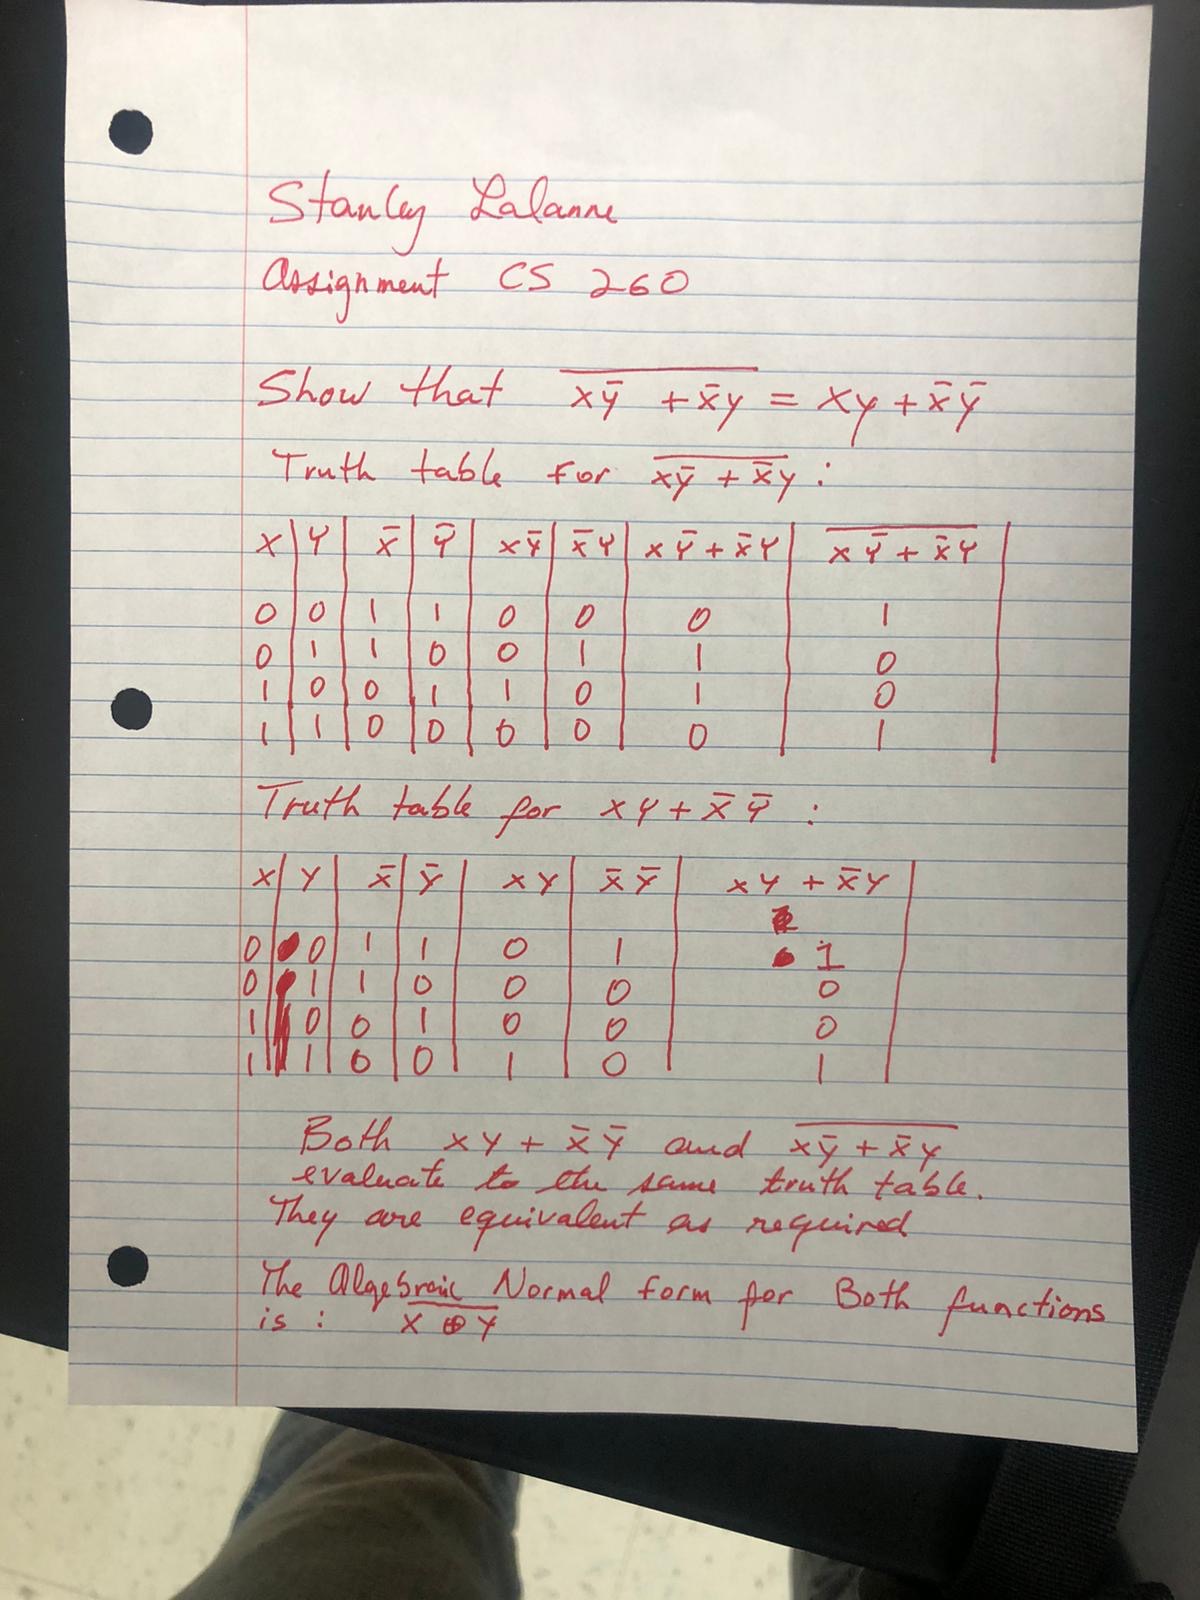 Stanley Lalanne
Assignment CS 260
Show that \overline{x\bar{y} + \bar{x}y} = xy + \bar{x}\bar{y}
Truth table for \overline{x\bar{y} + \bar{x}y} :
X | Y | \bar{X} | \bar{Y} | X\bar{Y} | \bar{X}Y | X\bar{Y} + \bar{X}Y | \overline{X\bar{Y} + \bar{X}Y}
0 | 0 | 1 | 1 | 0 | 0 | 0 | 1
0 | 1 | 1 | 0 | 0 | 1 | 1 | 0
1 | 0 | 0 | 1 | 1 | 0 | 1 | 0
1 | 1 | 0 | 0 | 0 | 0 | 0 | 1
Truth table for XY + \bar{X}\bar{Y} :
X | Y | \bar{X} | \bar{Y} | XY | \bar{X}\bar{Y} | XY + \bar{X}Y
0 | 0 | 1 | 1 | 0 | 1 | 1
0 | 1 | 1 | 0 | 0 | 0 | 0
1 | 0 | 0 | 1 | 0 | 0 | 0
1 | 1 | 0 | 0 | 1 | 0 | 1
Both XY + \bar{X}\bar{Y} and \overline{x\bar{y} + \bar{x}y}
evaluate to the same truth table.
They are equivalent as required
The Algebraic Normal form for Both functions
is : \overline{X ⊕ Y}